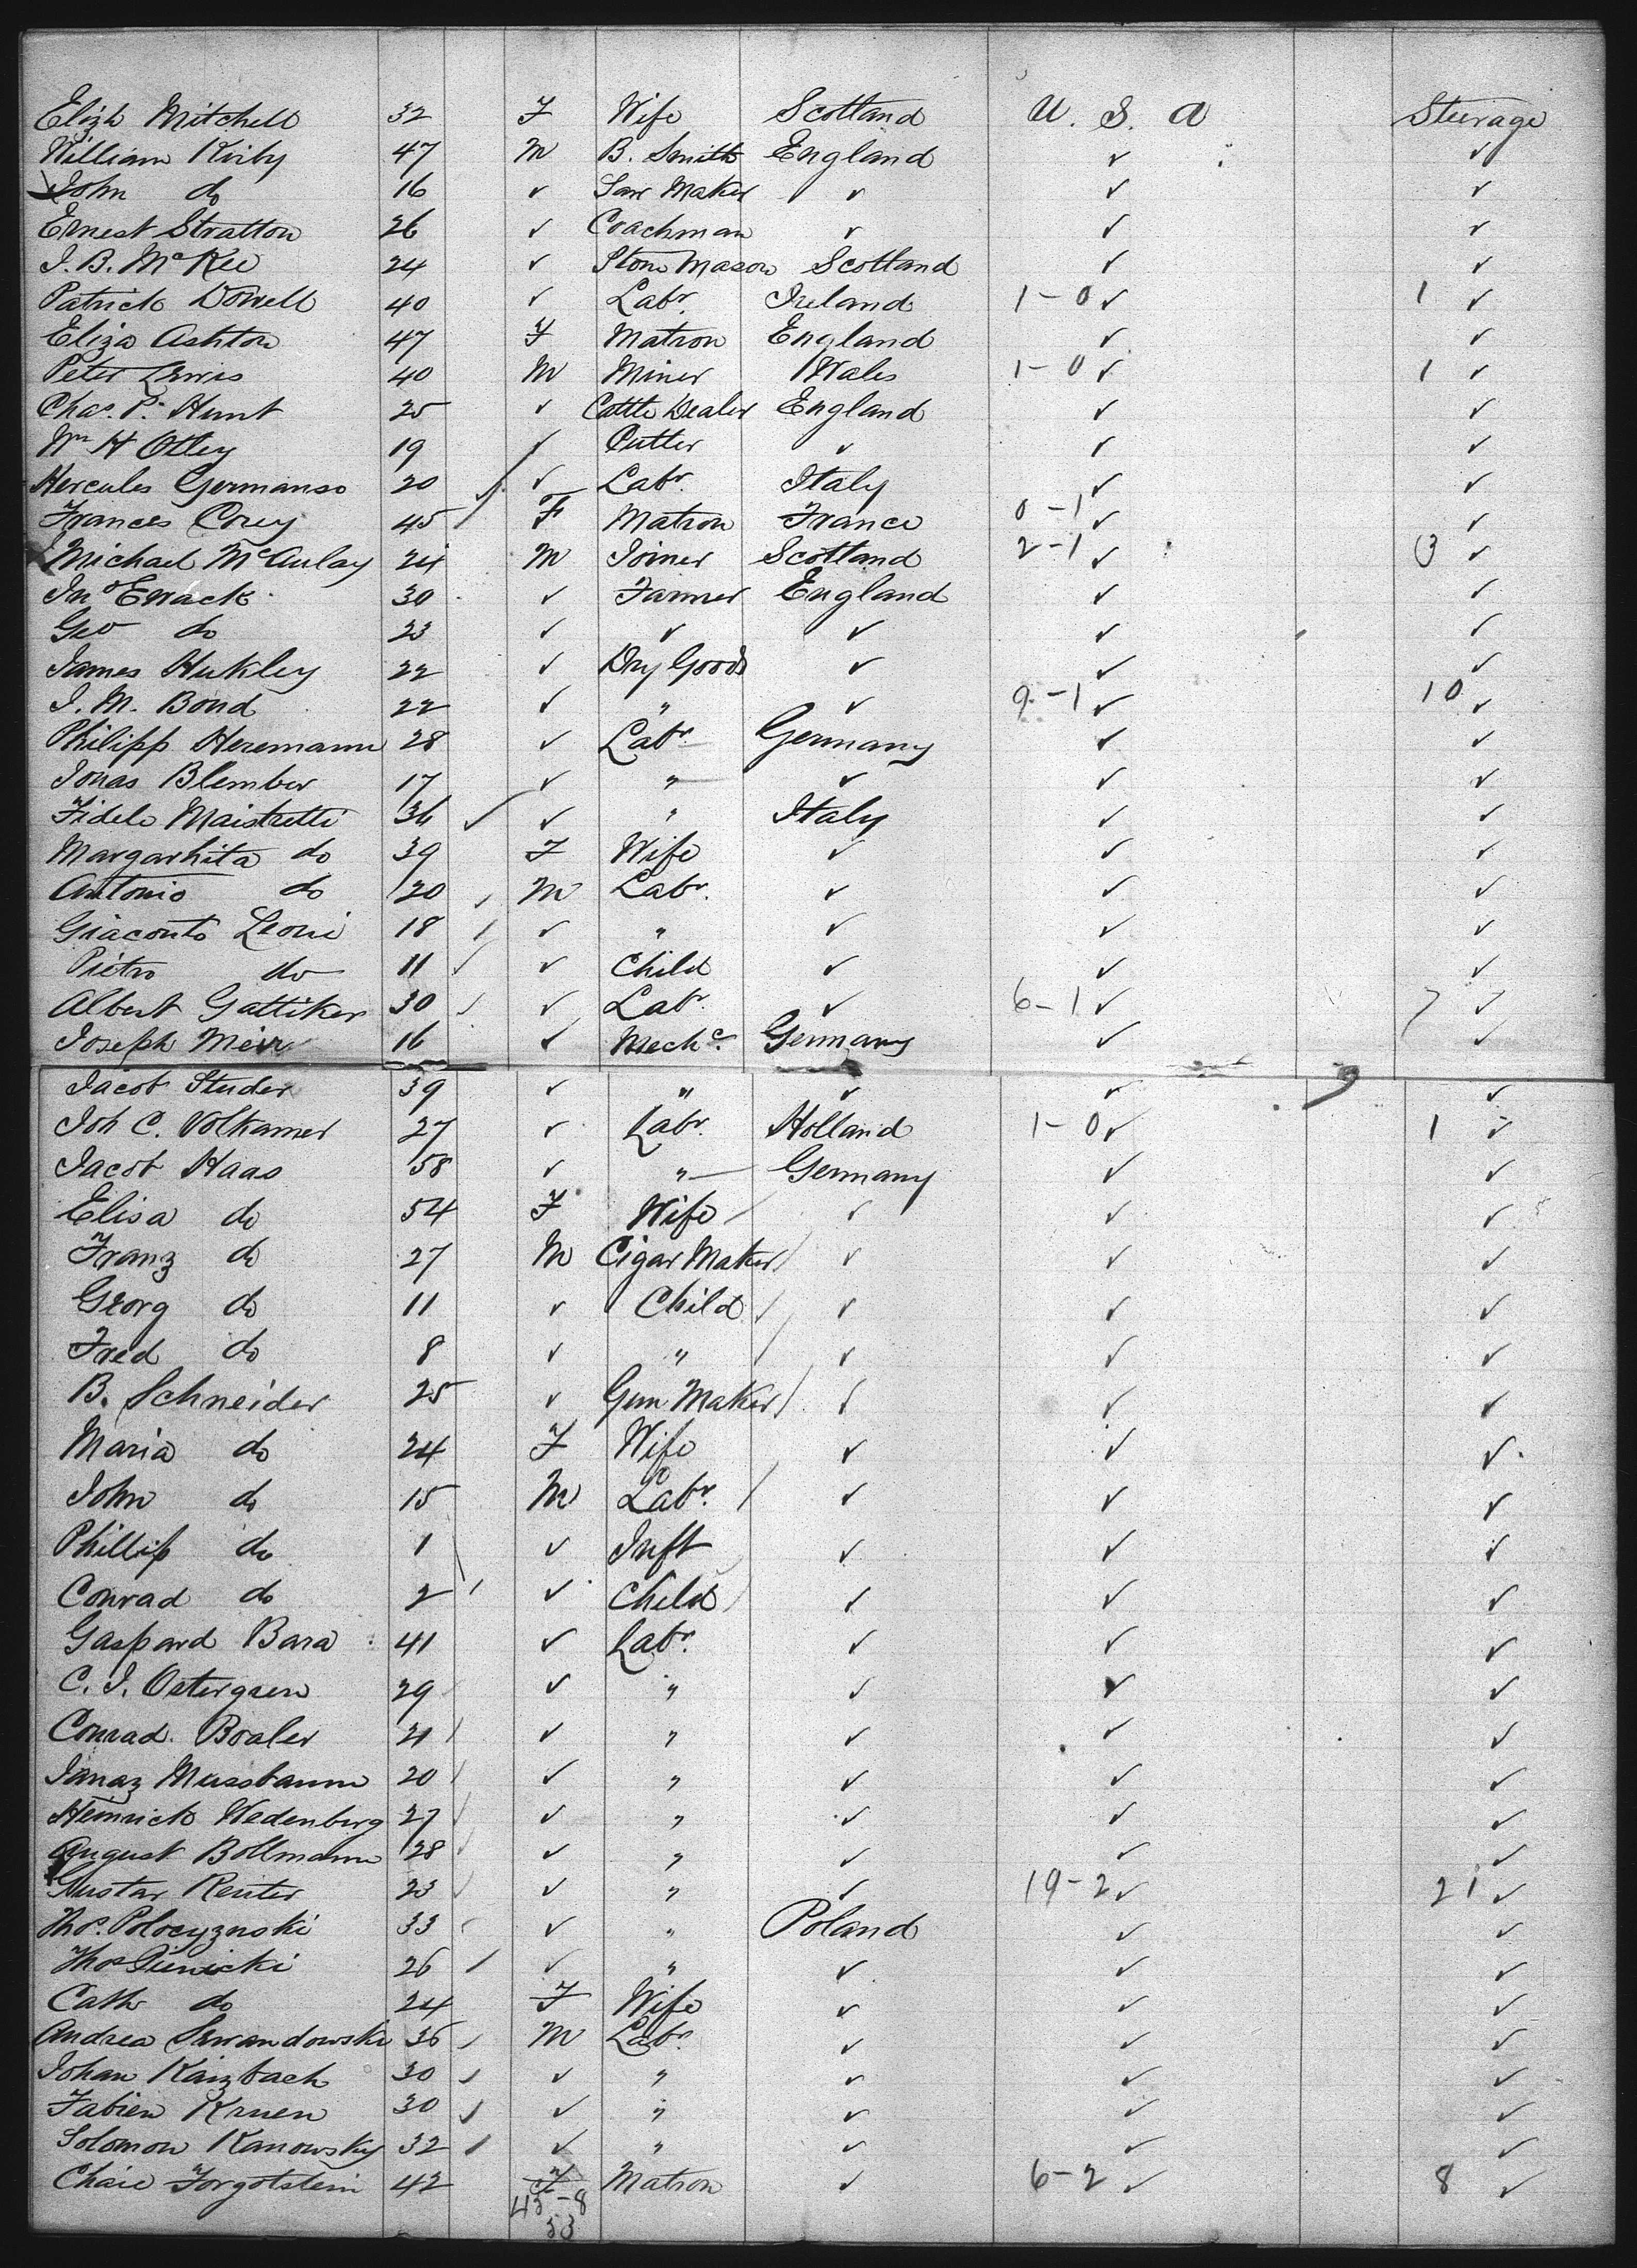 Elizh Mitchell 32 F Wife Scotland U. S. A Steerage
William Kirby 47 M B. Smith England ✓ ✓
John do 16 ✓ Saw Maker ✓ ✓ ✓
Ernest Stratton 26 ✓ Coachman ✓ ✓ ✓
J. B. McKee 24 ✓ Stone Mason Scotland ✓ ✓
Patrick Dowell 40 ✓ Labr. Ireland 1-0 ✓ 1 ✓
Eliza Ashton 47 F Matron England ✓ ✓
Peter Lewis 40 M Miner Wales 1-0 ✓ 1 ✓
Chas. P. Hunt 25 ✓ Cattle Dealer England ✓ ✓
Wm H Otley 19 ✓ Cutter ✓ ✓ ✓
Hercules Germanso 20 ✓ ✓ Labr. Italy ✓ ✓
Frances Corey 45 F Matron France 0-1 ✓ ✓
Michael McAulay 24 M Joiner Scotland 2-1 ✓ 3 ✓
Jno Ewack 30 ✓ Farmer England ✓ ✓
Geo do 23 ✓ ✓ ✓ ✓ ✓
James Hukley 22 ✓ Dry Goods ✓ ✓ ✓
J. M. Bond 22 ✓ " ✓ 9-1 ✓ 10 ✓
Philipp Heremann 28 ✓ Labr. Germany ✓ ✓
Jonas Blember 17 ✓ " ✓ ✓ ✓
Fidele Maistretti 36 ✓ ✓ " Italy ✓ ✓
Margarhita do 39 F Wife ✓ ✓ ✓
Antonio do 20 ✓ M Labr. ✓ ✓ ✓
Giaconto Leoni 18 ✓ ✓ " ✓ ✓ ✓
Pietro do 11 ✓ ✓ Child ✓ ✓ ✓
Albert Gattiker 30 ✓ ✓ Labr. ✓ 6-1 ✓ 7 ✓
Joseph Meir 16 ✓ Mechc. Germany ✓ ✓
Jacob Studer 39 ✓ " ✓ ✓ ✓
Joh C. Volkamer 27 ✓ Labr. Holland 1-0 ✓ 1 ✓
Jacob Haas 58 ✓ " Germany ✓ ✓
Elisa do 54 F Wife ✓ ✓ ✓
Franz do 27 M Cigar Maker ✓ ✓ ✓
Georg do 11 ✓ Child ✓ ✓ ✓
Fred do 8 ✓ " ✓ ✓ ✓
B. Schneider 25 ✓ Gun Maker ✓ ✓ ✓
Maria do 24 F Wife ✓ ✓ ✓
John do 15 M Labr. ✓ ✓ ✓
Phillip do 1 ✓ Inft ✓ ✓ ✓
Conrad do 2 ✓ Child ✓ ✓ ✓
Gaspard Bara 41 ✓ Labr. ✓ ✓ ✓
C. J. Ostergren 29 ✓ " ✓ ✓ ✓
Conrad Boaler 21 ✓ " ✓ ✓ ✓
Ignaz Mussbaum 20 ✓ " ✓ ✓ ✓
Heinrich Wedenberg 27 ✓ " ✓ ✓ ✓
August Bollmann 28 ✓ " ✓ ✓ ✓
Gustav Reuter 23 ✓ " ✓ 19-2 ✓ 21 ✓
Thos. Polocyznski 33 ✓ " Poland ✓ ✓
Thos Pienicki 26 ✓ " ✓ ✓ ✓
Cath do 24 F Wife ✓ ✓ ✓
Andrea Lewandowski 36 M Labr. ✓ ✓ ✓
Johan Kainzbach 30 ✓ ✓ " ✓ ✓ ✓
Fabien Kruen 30 ✓ ✓ " ✓ ✓ ✓
Solomon Kanowsky 32 ✓ " ✓ ✓ ✓
Chaie Forgotstein 42 F Matron ✓ 6-2 ✓ 8 ✓
45-8
53